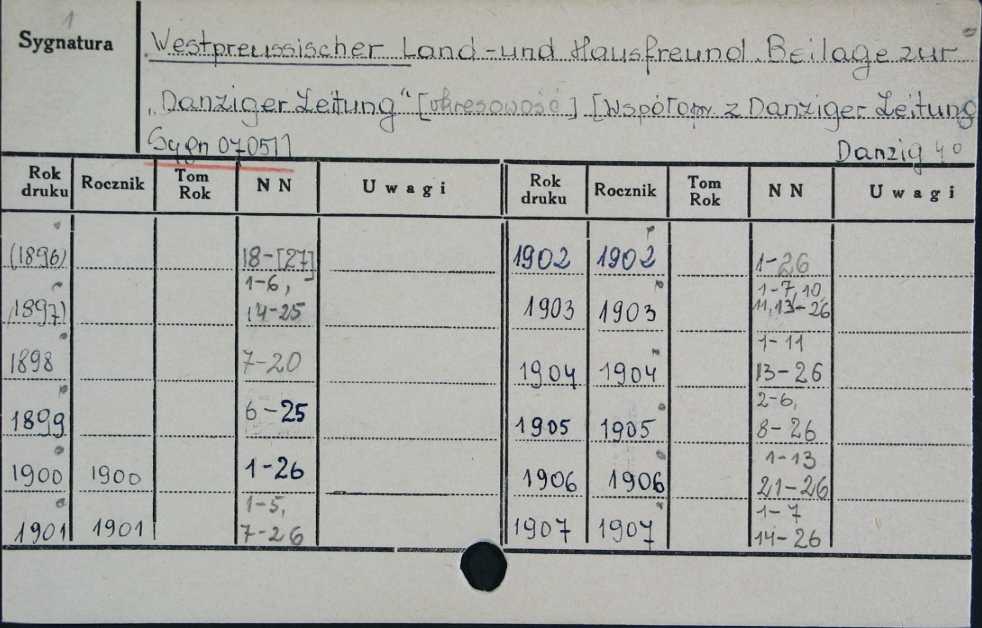 1
Sygnatura
Westpreussischer Land-und Hausfreund. Beilage zur
"Danziger Zeitung" [okresowość] [Współopr z Danziger Zeitung
Sygn 07051] Danzig 4o
Rok druku Rocznik Tom Rok NN Uwagi Rok druku Rocznik Tom Rok NN Uwagi
(1896) 18-[27] 1902 1902 1-26
1897) 1-6, 14-25 1903 1903 1-7, 10 11, 13-26
1898 7-20 1904 1904 1-11 13-26
1899 6-25 1905 1905 2-6, 8-26
1900 1900 1-26 1906 1906 1-13 21-26
1901 1901 1-5, 7-26 1907 1907 1-7 14-26